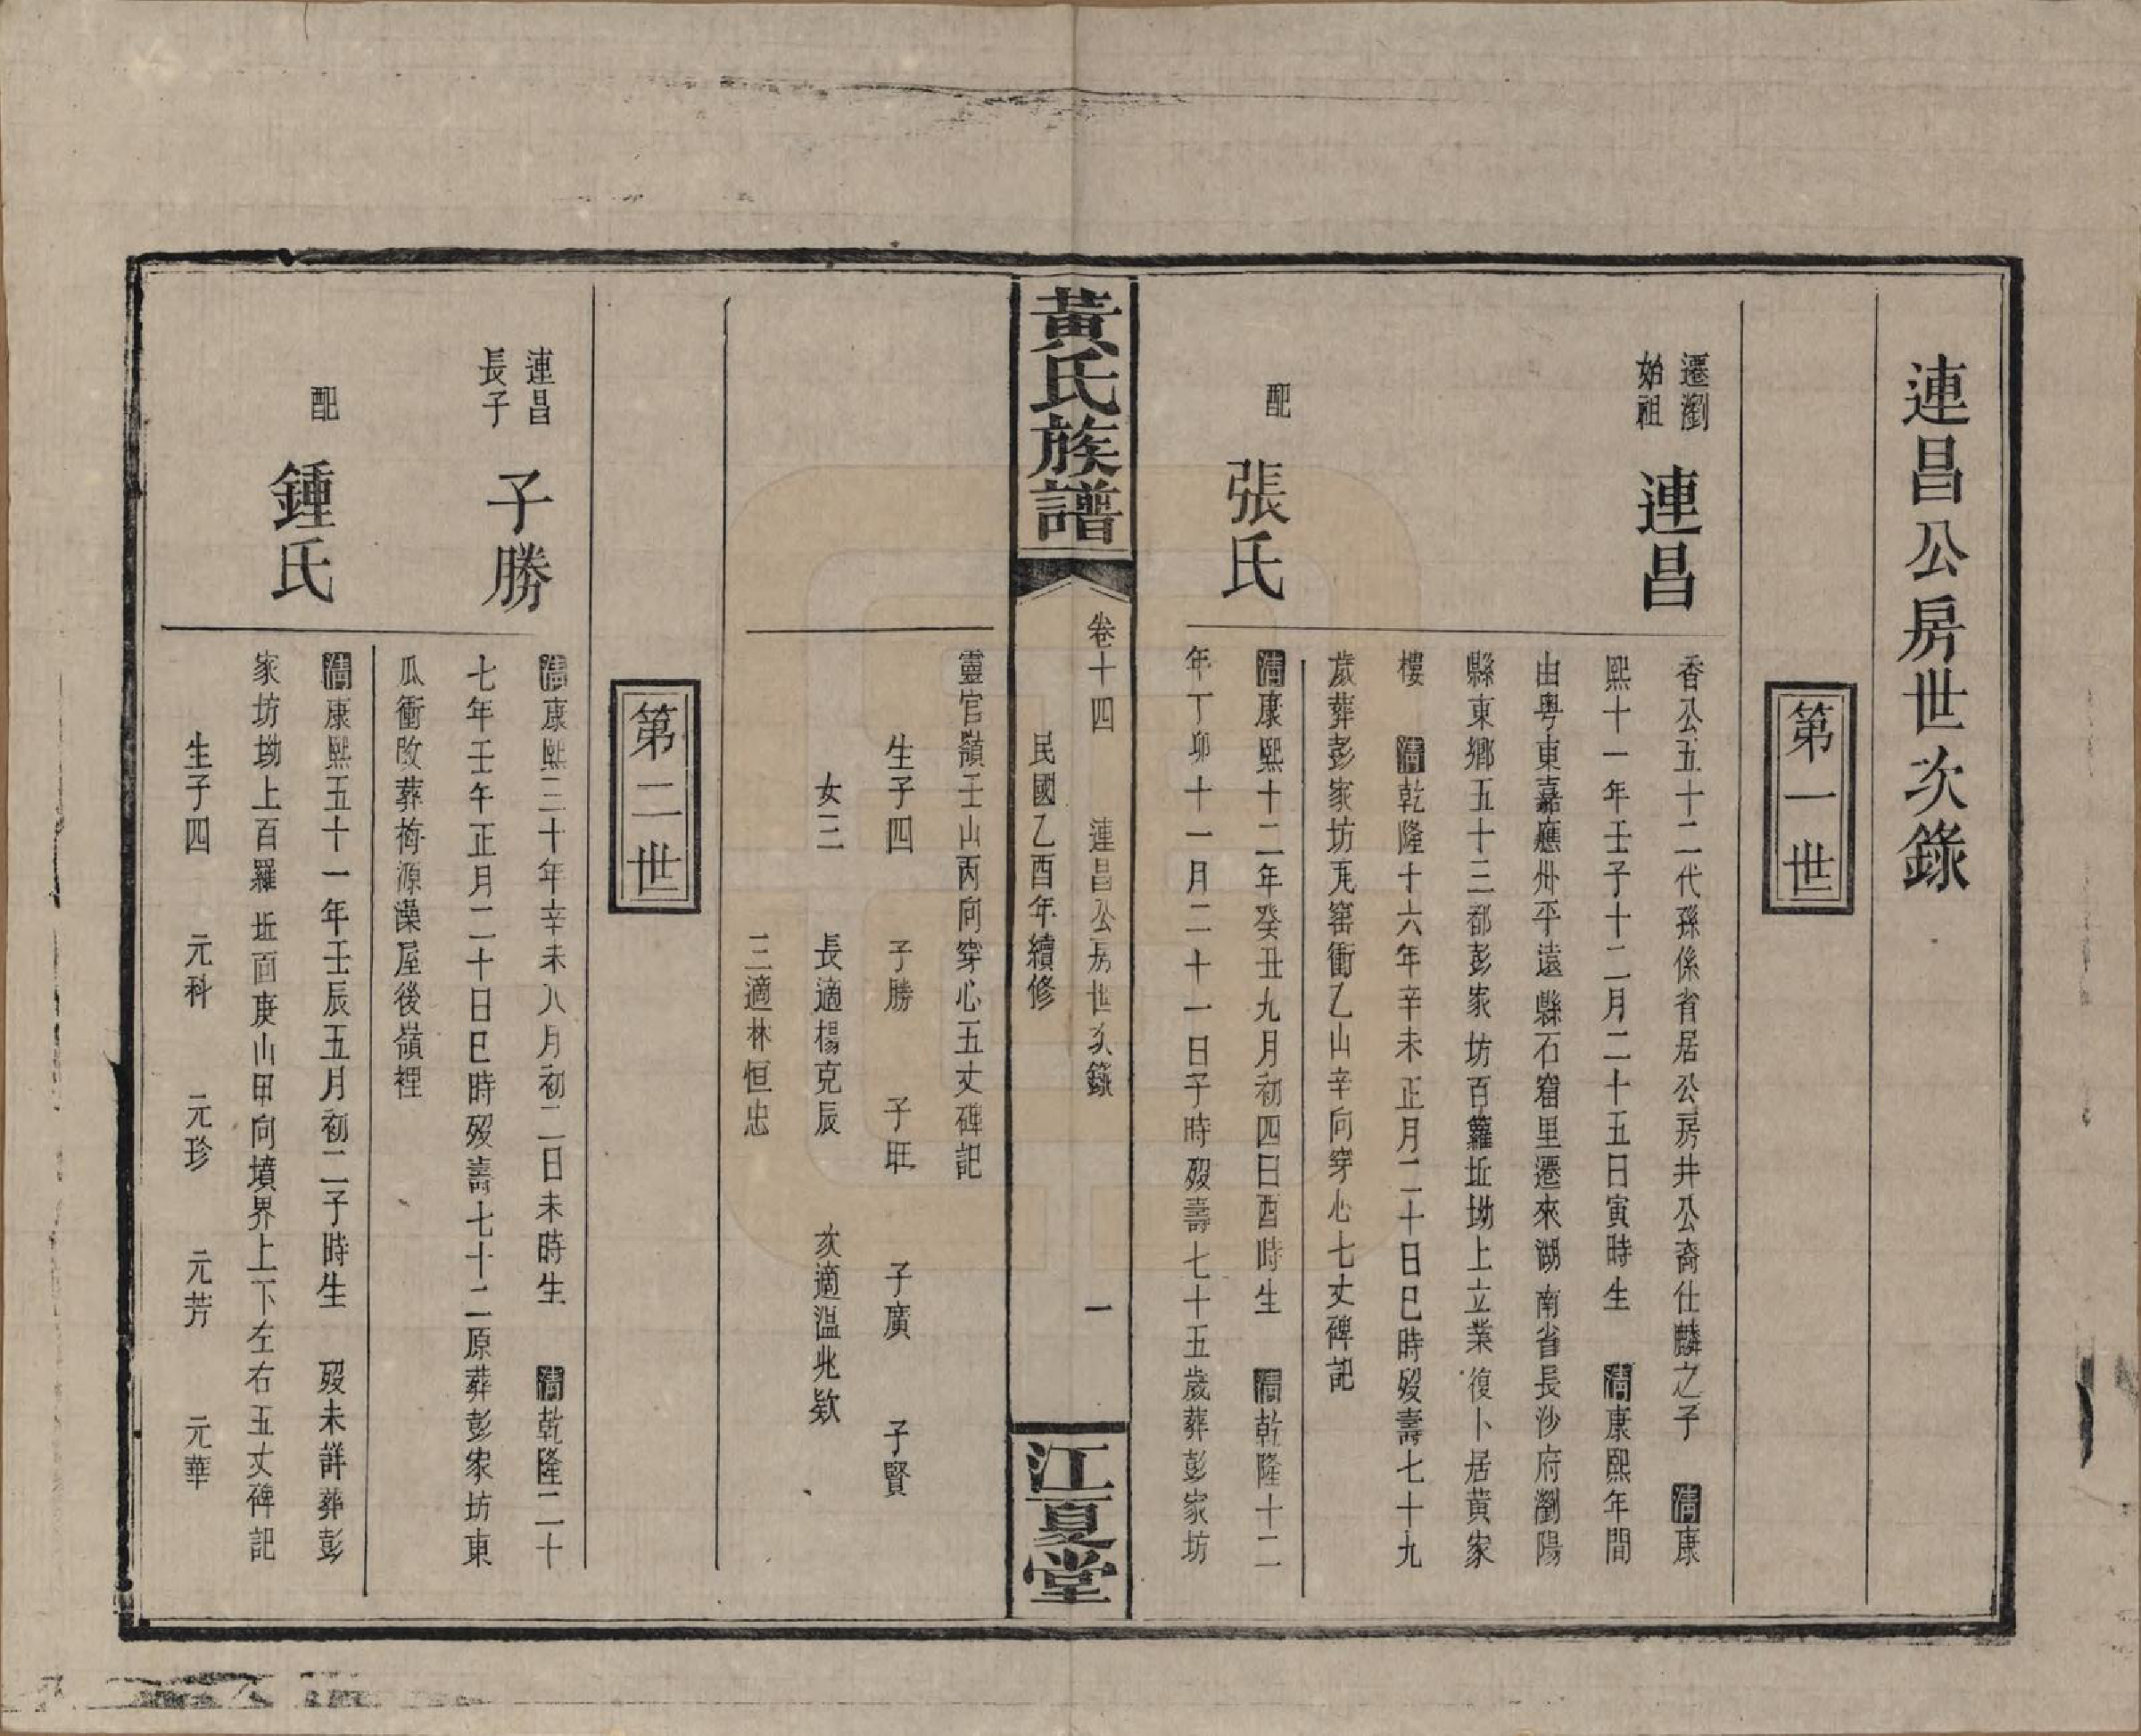 連昌公房世次錄
第一世
遷瀏
始祖
連昌
香公五十二代孫係省居公房井公裔仕麟之子 清康
熙十一年壬子十二月二十五日寅時生 清康熙年間
由粤東嘉應州平遠縣石窟里遷來湖南省長沙府瀏陽
縣東鄉五十三都彭家坊百籮坵坳上立業復卜居黄家
樓 清乾隆十六年辛未正月二十日巳時殁壽七十九
歲葬彭家坊瓦窰衝乙山辛向穿心七丈碑記
配
張氏
清康熙十二年癸丑九月初四日酉時生 清乾隆十二
年丁卯十一月二十一日子時殁壽七十五歲葬彭家坊
黃氏族譜
卷十四 連昌公房世次錄 一
民國乙酉年續修
江夏堂
靈官嶺壬山丙向穿心五丈碑記
生子四 子勝 子旺 子廣 子賢
女三 長適楊克辰 次適温兆欵
三適林恒忠
第二世
連昌
長子
子勝
清康熙三十年辛未八月初二日未時生 清乾隆二十
七年壬午正月二十日巳時殁壽七十二原葬彭家坊東
瓜衝改葬梅源澡屋後嶺裡
配
鍾氏
清康熙五十一年壬辰五月初二子時生 殁未詳葬彭
家坊坳上百羅坵面庚山甲向墳界上下左右五丈碑記
生子四 元科 元珍 元芳 元華